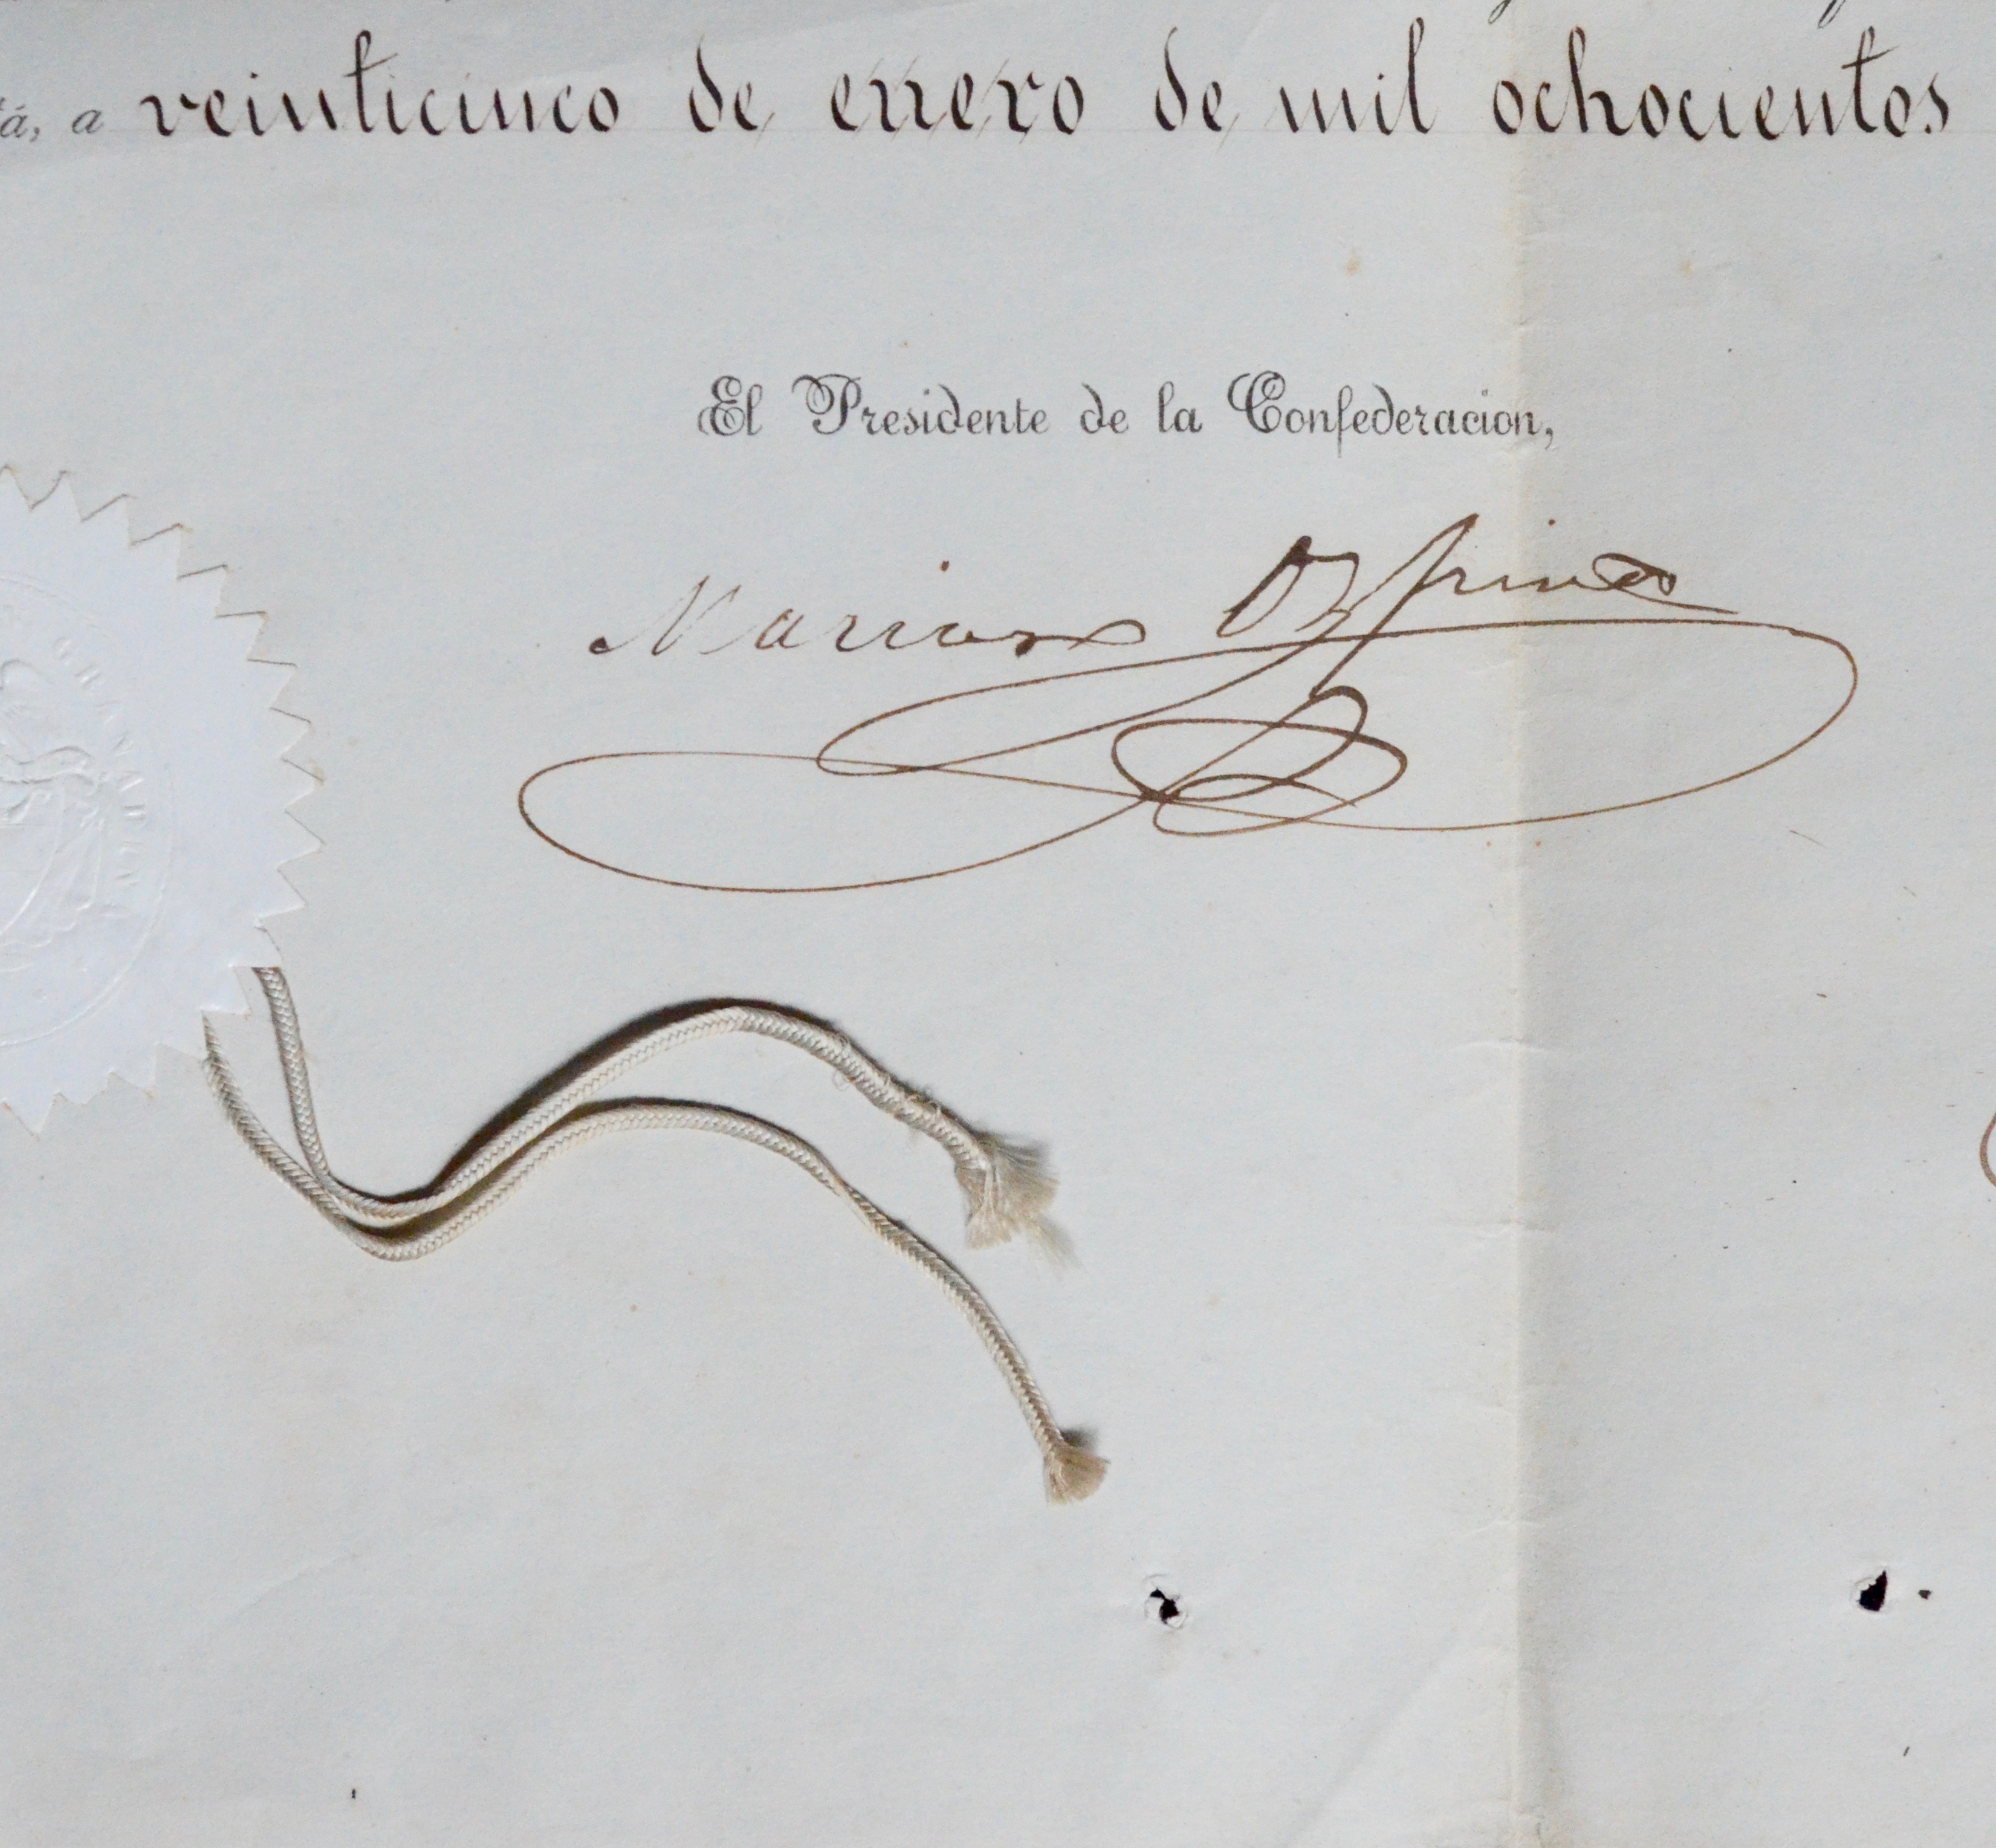 á, a veinticinco de enero de mil ochocientos
El Presidente de la Confederacion,
Mariano Ospina
GRANADIN